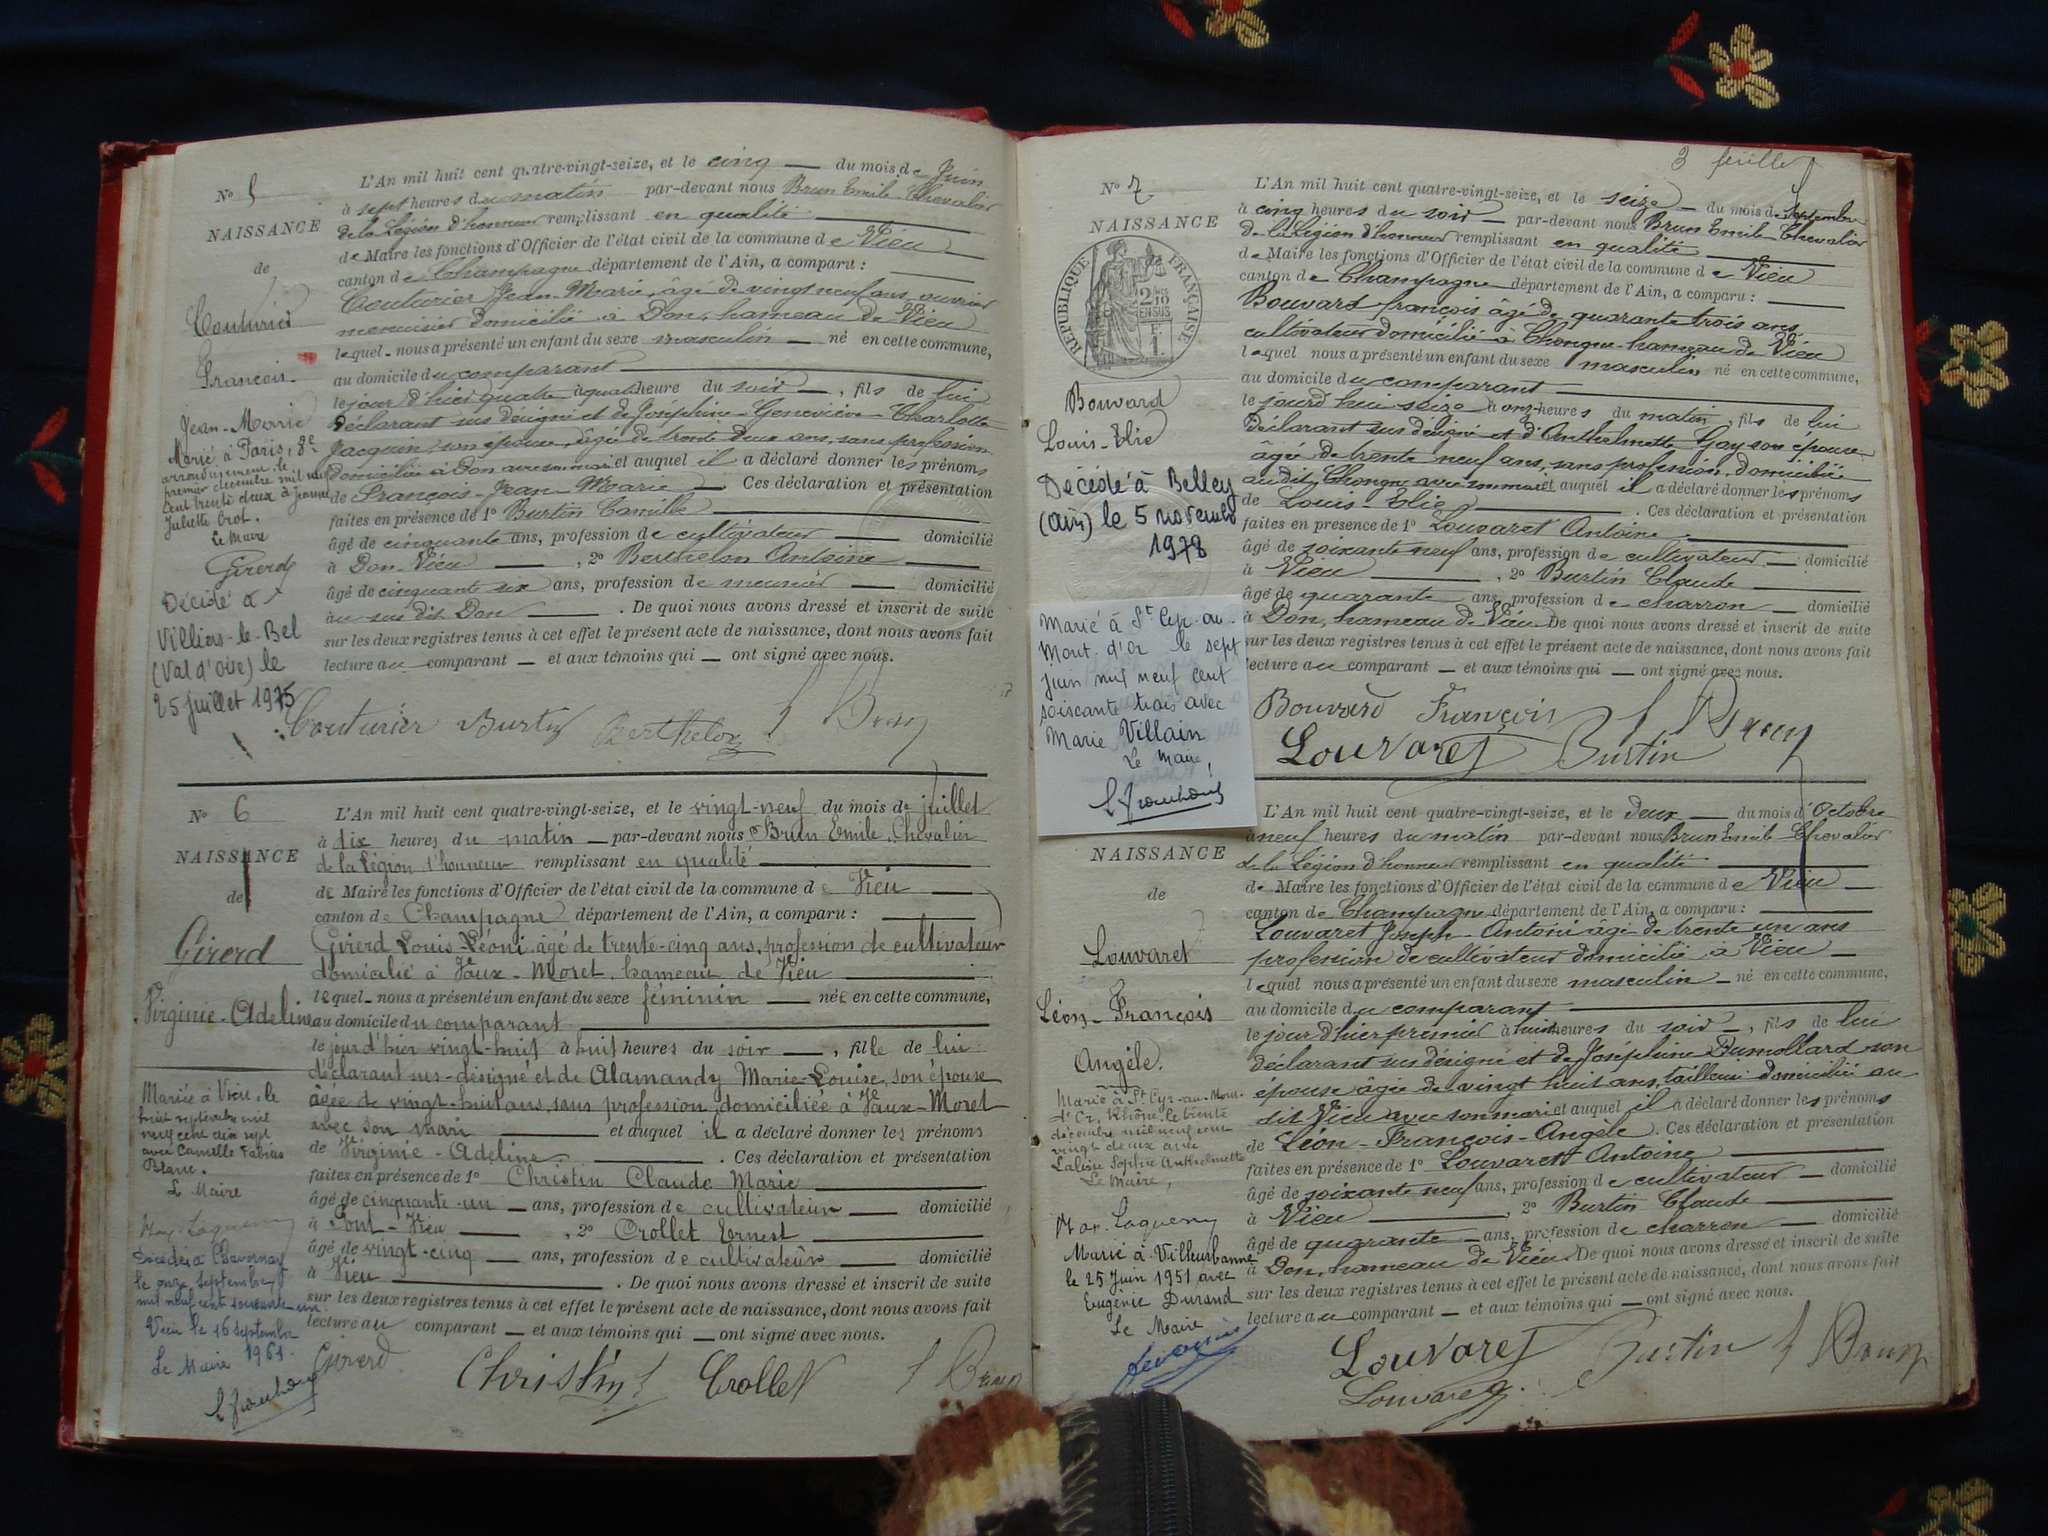 Nº 5
NAISSANCE
de
Couturier
François-
Jean-Marie
Marié à Paris, 8e
arrondissement le
premier décembre mil neuf
cent trente deux à Jeanne
Juliette Crot.
Le Maire
Girerd
Décédé à
Villiers-le-Bel
(Val d'Oise) le
25 juillet 1975
L'An mil huit cent quatre-vingt-seize, et le cinq du mois de Juin
à sept heures du matin par-devant nous Brun Emile Chevalier
de la Légion d'honneur remplissant en qualité
de Maire les fonctions d'Officier de l'état civil de la commune de Vieu
canton de Champagne département de l'Ain, a comparu :
Couturier Jean-Marie, âgé de vingt neuf ans, ouvrier
menuisier domicilié à Don, hameau de Vieu
lequel nous a présenté un enfant du sexe masculin né en cette commune,
au domicile du comparant
le jour d'hier quatre à quatre heure du soir, fils de lui
déclarant sus désigné et de Joséphine-Geneviève-Charlotte
Jacquin, son épouse, âgée de trente deux ans, sans profession
domiciliée à Don avec son mari et auquel il a déclaré donner les prénoms
de François-Jean-Marie Ces déclaration et présentation
faites en présence de 1º Burtin Camille
âgé de cinquante ans, profession de cultivateur domicilié
à Don-Vieu, 2º Berthelon Antoine
âgé de cinquante six ans, profession de meunier domicilié
au sus dit Don. De quoi nous avons dressé et inscrit de suite
sur les deux registres tenus à cet effet le présent acte de naissance, dont nous avons fait
lecture au comparant et aux témoins qui ont signé avec nous.
Couturier Burtin Berthelon E Brun
Nº 6
NAISSANCE
de
Girerd
Virginie-Adeline
Mariée à Vieu, le
huit septembre mil
neuf cent dix sept
avec Camille Fabius
Blanc.
Le Maire
Décédée à Chavornay
le onze septembre
mil neuf cent soixante-un
Vieu le 16 septembre
1961.
Le Maire
L'An mil huit cent quatre-vingt-seize, et le vingt-neuf du mois de juillet
à dix heures du matin par-devant nous Brun Emile, Chevalier
de la Légion d'honneur remplissant en qualité
de Maire les fonctions d'Officier de l'état civil de la commune de Vieu
canton de Champagne département de l'Ain, a comparu :
Girerd Louis-Léoni, âgé de trente-cinq ans, profession de cultivateur
domicilié à Vaux-Moret, hameau de Vieu
lequel nous a présenté un enfant du sexe féminin née en cette commune,
au domicile du comparant
le jour d'hier vingt-huit à huit heures du soir, fille de lui
déclarant sus-désigné et de Alamandy Marie-Louise, son épouse
âgée de vingt-huit ans, sans profession, domiciliée à Vaux-Moret
avec son mari et auquel il a déclaré donner les prénoms
de Virginie-Adeline. Ces déclaration et présentation
faites en présence de 1º Christin Claude Marie
âgé de cinquante-un ans, profession de cultivateur domicilié
à Pont-Vieu, 2º Crollet Ernest
âgé de vingt-cinq ans, profession de cultivateur domicilié
à Vieu. De quoi nous avons dressé et inscrit de suite
sur les deux registres tenus à cet effet le présent acte de naissance, dont nous avons fait
lecture au comparant et aux témoins qui ont signé avec nous.
Girerd Christin Crollet E Brun
3 feuillet
Nº 7
NAISSANCE
RÉPUBLIQUE FRANÇAISE
2/10 EN SUS
Bouvard
Louis-Elie
Décédé à Belley
(Ain) le 5 novembre
1978
Marié à St Cyr-au-
Mont-d'Or le sept
juin mil neuf cent
soixante trois avec
Marie Villain
Le Maire,
L'An mil huit cent quatre-vingt-seize, et le seize du mois de Septembre
à cinq heures du soir par-devant nous Brun Emile Chevalier
de la Légion d'honneur remplissant en qualité
de Maire les fonctions d'Officier de l'état civil de la commune de Vieu
canton de Champagne département de l'Ain, a comparu :
Bouvard François âgé de quarante trois ans,
cultivateur domicilié à Chongne hameau de Vieu
lequel nous a présenté un enfant du sexe masculin né en cette commune,
au domicile du comparant
le jourd'hui seize à onze heures du matin, fils de lui
déclarant sus désigné et d'Anthelmette Goy son épouse
âgée de trente neuf ans, sans profession, domiciliée
au dit Chongne avec son mari et auquel il a déclaré donner les prénoms
de Louis-Elie. Ces déclaration et présentation
faites en présence de 1º Louvaret Antoine
âgé de soixante neuf ans, profession de cultivateur domicilié
à Vieu, 2º Burtin Claude
âgé de quarante ans, profession de charron domicilié
à Don, hameau de Vieu De quoi nous avons dressé et inscrit de suite
sur les deux registres tenus à cet effet le présent acte de naissance, dont nous avons fait
lecture au comparant et aux témoins qui ont signé avec nous.
Bouvard François E Brun
Louvaret Burtin
NAISSANCE
de
Louvaret
Léon-François
Angèle.
Marié à St Cyr-au-Mont-
d'Or, Rhône, le trente
décembre mil neuf cent
vingt deux avec
Sophie Anthelmette
Le Maire,
Marié à Villeurbanne
le 25 Juin 1951 avec
Eugénie Durand
Le Maire
L'An mil huit cent quatre-vingt-seize, et le deux du mois d'Octobre
à neuf heures du matin par-devant nous Brun Emile Chevalier
de la Légion d'honneur remplissant en qualité
de Maire les fonctions d'Officier de l'état civil de la commune de Vieu
canton de Champagne département de l'Ain, a comparu :
Louvaret Joseph-Antoine âgé de trente un ans
profession de cultivateur domicilié à Vieu
lequel nous a présenté un enfant du sexe masculin né en cette commune,
au domicile du comparant
le jour d'hier premier à huit heures du soir, fils de lui
déclarant sus désigné et de Joséphine Dumollard son
épouse âgée de vingt huit ans, tailleuse domiciliée au
dit Vieu avec son mari et auquel il a déclaré donner les prénoms
de Léon-François-Angèle. Ces déclaration et présentation
faites en présence de 1º Louvaret Antoine
âgé de soixante neuf ans, profession de cultivateur domicilié
à Vieu, 2º Burtin Claude
âgé de quarante ans, profession de charron domicilié
à Don, hameau de Vieu. De quoi nous avons dressé et inscrit de suite
sur les deux registres tenus à cet effet le présent acte de naissance, dont nous avons fait
lecture au comparant et aux témoins qui ont signé avec nous.
Louvaret Burtin E Brun
Louvaret